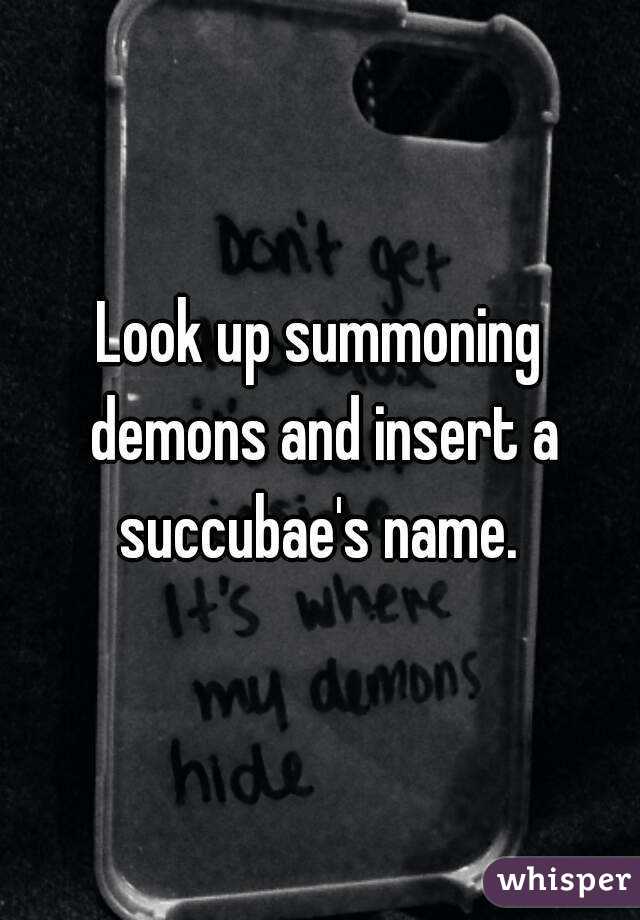 Don't get
Look up summoning
demons and insert a
succubae's name.
It's where
my demons
hide
whisper